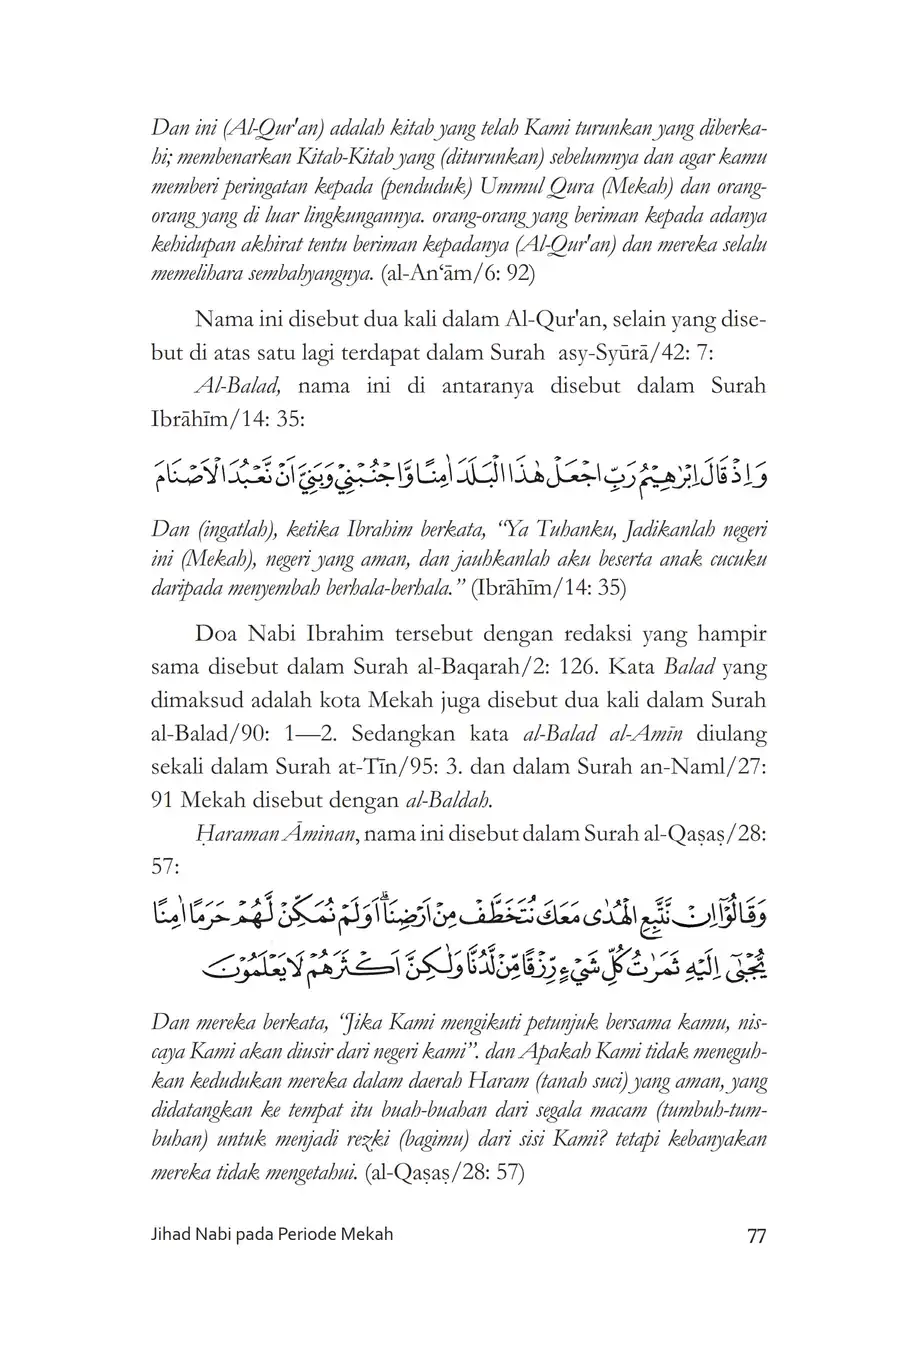 Dan ini (Al-Qur'an) adalah kitab yang telah Kami turunkan yang diberka-
hi; membenarkan Kitab-Kitab yang (diturunkan) sebelumnya dan agar kamu
memberi peringatan kepada (penduduk) Ummul Qura (Mekah) dan orang-
orang yang di luar lingkungannya. orang-orang yang beriman kepada adanya
kehidupan akhirat tentu beriman kepadanya (Al-Qur'an) dan mereka selalu
memelihara sembahyangnya. (al-An‘ām/6: 92)
Nama ini disebut dua kali dalam Al-Qur'an, selain yang dise-
but di atas satu lagi terdapat dalam Surah asy-Syūrā/42: 7:
Al-Balad, nama ini di antaranya disebut dalam Surah
Ibrāhīm/14: 35:
وَاِذْ قَالَ اِبْرٰهِيْمُ رَبِّ اجْعَلْ هٰذَا الْبَلَدَ اٰمِنًا وَّاجْنُبْنِيْ وَبَنِيَّ اَنْ نَّعْبُدَ الْاَصْنَامَ
Dan (ingatlah), ketika Ibrahim berkata, “Ya Tuhanku, Jadikanlah negeri
ini (Mekah), negeri yang aman, dan jauhkanlah aku beserta anak cucuku
daripada menyembah berhala-berhala.” (Ibrāhīm/14: 35)
Doa Nabi Ibrahim tersebut dengan redaksi yang hampir
sama disebut dalam Surah al-Baqarah/2: 126. Kata Balad yang
dimaksud adalah kota Mekah juga disebut dua kali dalam Surah
al-Balad/90: 1—2. Sedangkan kata al-Balad al-Amīn diulang
sekali dalam Surah at-Tīn/95: 3. dan dalam Surah an-Naml/27:
91 Mekah disebut dengan al-Baldah.
Ḥaraman Āminan, nama ini disebut dalam Surah al-Qaṣaṣ/28:
57:
وَقَالُوْٓا اِنْ نَّتَّبِعِ الْهُدٰى مَعَكَ نُتَخَطَّفْ مِنْ اَرْضِنَاۗ اَوَلَمْ نُمَكِّنْ لَّهُمْ حَرَمًا اٰمِنًا
يُّجْبٰٓى اِلَيْهِ ثَمَرٰتُ كُلِّ شَيْءٍ رِّزْقًا مِّنْ لَّدُنَّا وَلٰكِنَّ اَكْثَرَهُمْ لَا يَعْلَمُوْنَ
Dan mereka berkata, “Jika Kami mengikuti petunjuk bersama kamu, nis-
caya Kami akan diusir dari negeri kami”. dan Apakah Kami tidak meneguh-
kan kedudukan mereka dalam daerah Haram (tanah suci) yang aman, yang
didatangkan ke tempat itu buah-buahan dari segala macam (tumbuh-tum-
buhan) untuk menjadi rezki (bagimu) dari sisi Kami? tetapi kebanyakan
mereka tidak mengetahui. (al-Qaṣaṣ/28: 57)
Jihad Nabi pada Periode Mekah 77